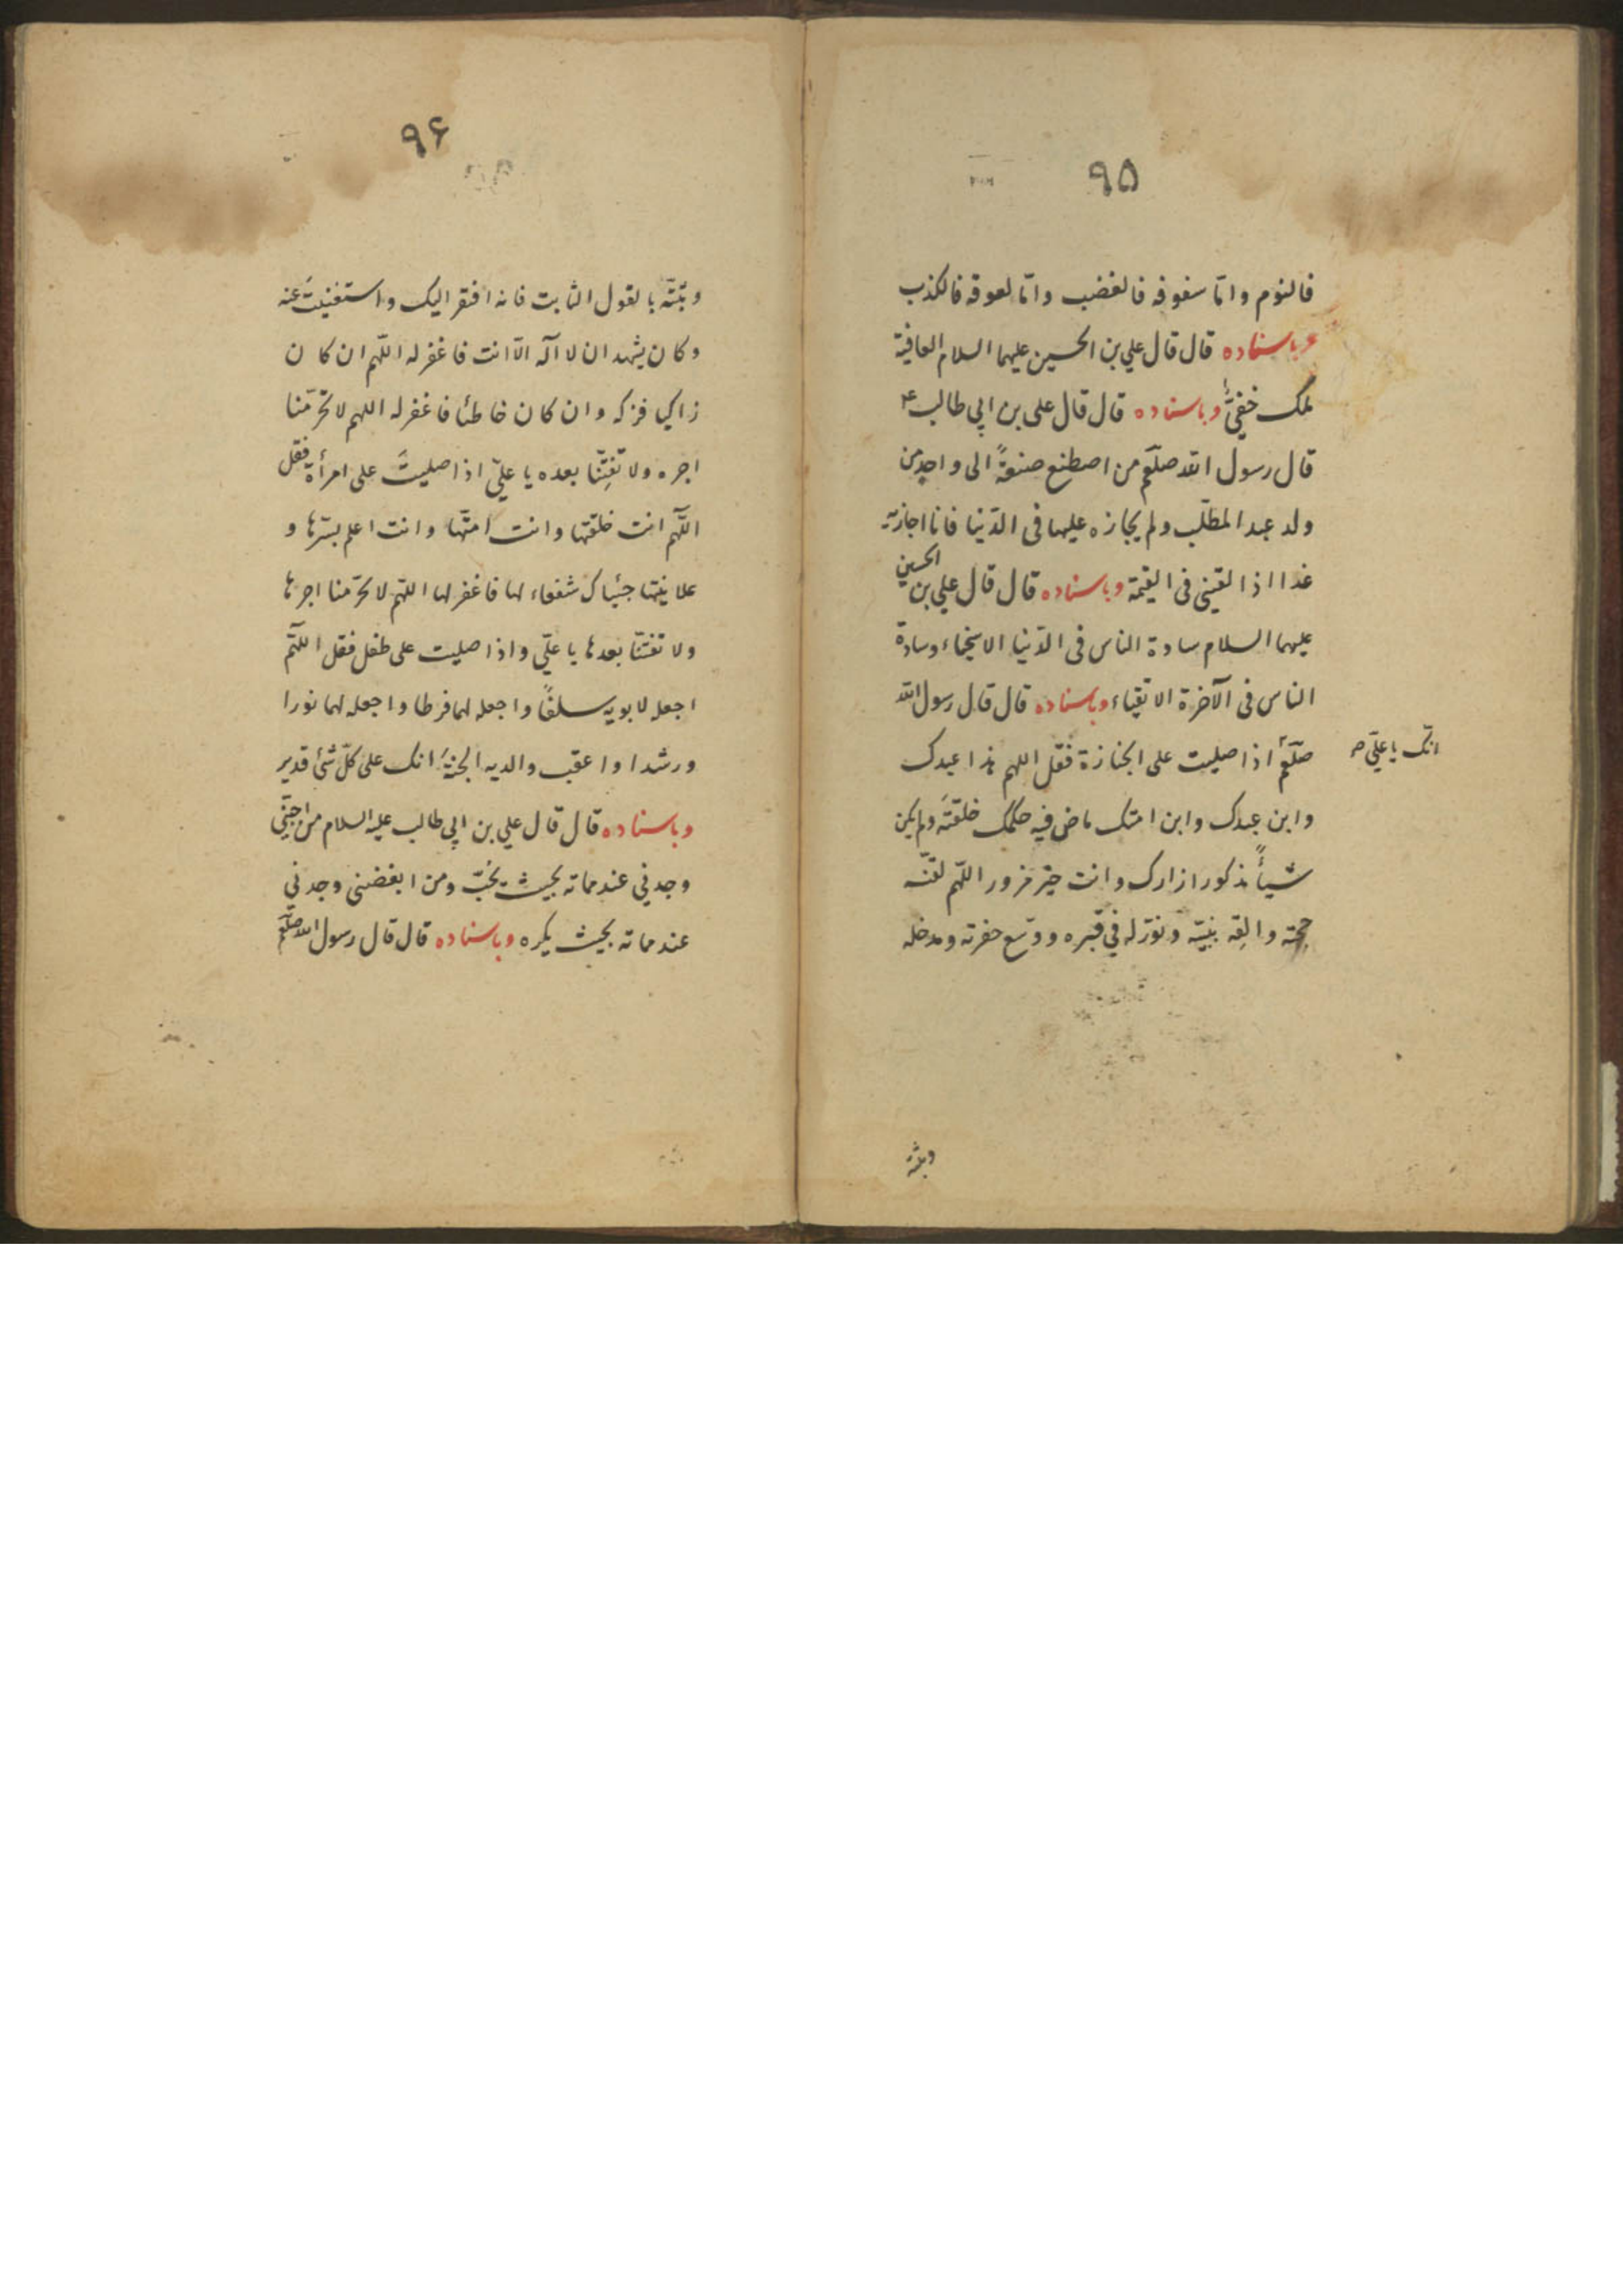 ٩٥
فالنوم واما سفوفه فالغضب واما لعوقه فالكذب
وباسناده قال قال علي بن الحسين عليهما السلام العافية
ملك خفيّ وباسناده قال قال علي بن ابي طالب ع
قال رسول الله صلعم من اصطنع صنعةً الى واحد من
ولد عبد المطلب ولم يجازه عليها في الدّنيا فانا اجازيه
غدا اذا لقيني في القيمة وباسناده قال قال علي بن الحسين
عليهما السلام سادة الناس في الدّنيا الاسخياء وسادة
الناس في الآخرة الاتقياء وباسناده قال قال رسول الله
صلّعم اذا صليت على الجنازة فقل اللهم هذا عبدك
انّك يا عليّ صح
وابن عبدك وابن امتك ماض فيه حكمك خلقتَه ولم يكن
شيأً مذكورا زارك وانت خير مزور اللّهم لقّنه
حجته والحِقه بنبيّه ونوّر له في قبره ووسّع حفرته ومدخله
وثبّته
٩۶
وثبّته بالقول الثابت فانه افتقر اليك واستغنيتَ عنه
وكان يشهد ان لا آله الّا انت فاغفر له اللّهم ان كان
زاكيا فزكه وان كان خاطئا فاغفر له اللهم لا تحرّمنا
اجره ولا تَفتِنّا بعده يا عليّ اذا صليتَ على امرأة فقل
اللّهم انت خلقتها وانت امتّها وانت اعلم بسّرها و
علانيتها جئناك شفعاء لها فاغفر لها اللّهم لا تحرّمنا اجرها
ولا تفتنّا بعدها يا عليّ واذا صليت على طفل فقل اللّهم
اجعله لابويه سلفًا واجعله لهما فرطا واجعله لهما نورا
ورشدا واعقب والديه الجنةَ انك على كلّ شئ قدير
وباسناده قال قال علي بن ابي طالب عليه السلام من احبّني
وجدني عند مماته بحيث يحُبّ ومن ابغضنى وجدني
عند مماته بحيث يكره وباسناده قال قال رسول الله صلّعم